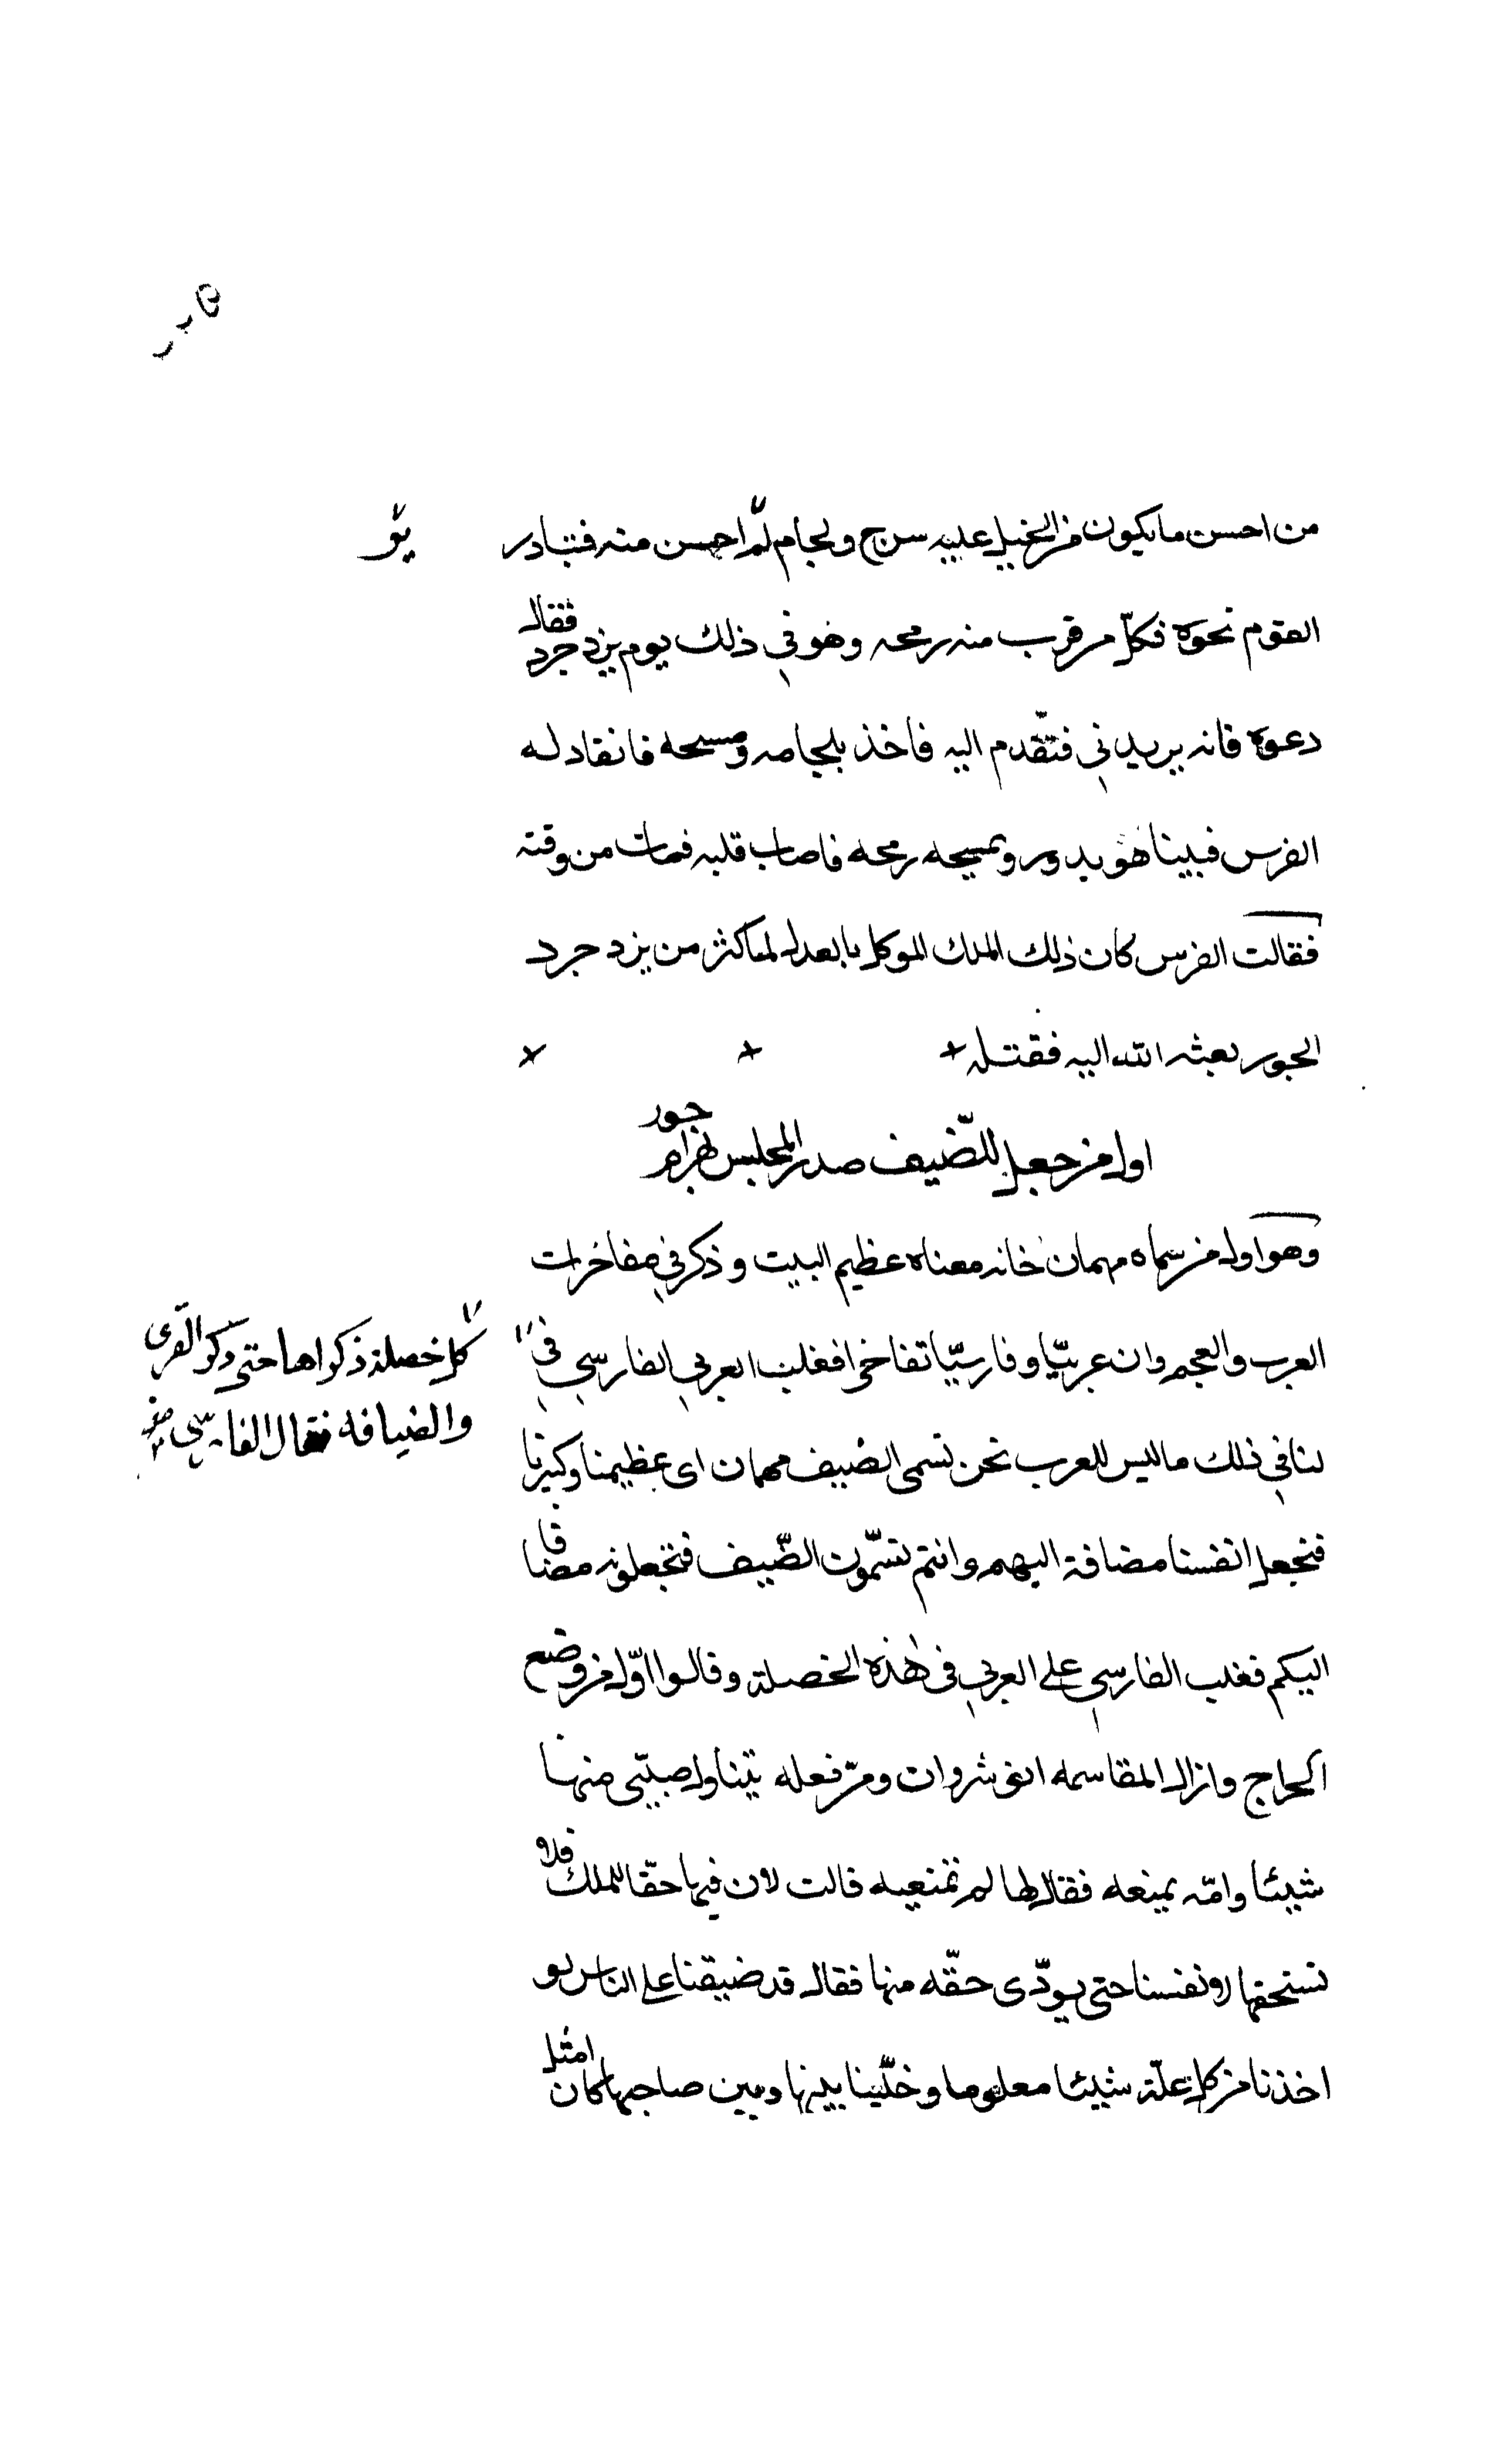 من احسن ما يكون من الخيل عليه سرج ولجام لم ير احسن منه فتبادر
القوم نحوه فكل من قرب منه رمحه وهو في ذلك يوم يزد جرد فقال
دعوه فانه يريدني فتقدم اليه فاخذ بلجامه ومسحه فانقاد له
الفرس فبينا هو يدور ويمسحه رمحه فاصاب قلبه فمات من وقته
فقالت الفرس كان ذلك الملك الموكل بالعدل لما كثر من يزد جرد
الجور بعثه الله اليه فقتله
اول من جعل للضيف صدر المجلس بهرام جور
وهو اول من سماه مهمان خانه معناه عظيم البيت وذكر في مفاخرات
العرب والعجم وان عربيّا وفارسيّا تفاخرا فغلب العربي الفارسي في
كل خصلة ذكراها حتى ذكر القرى
والضيافه فقال الفارسي
لنا في ذلك ما ليس للعرب نحن نسمى الضيف مهمان اى عظيمنا وكبيرنا
فنجعل انفسنا مضافة اليهم وانتم تسمّون الضّيف فتجعلونه مضافا
اليكم فغلب الفارسي على العربي في هذه الخصلة وقالوا اوّل من وضع
الخراج وازال المقاسمه انوشروان ومرّ فعله يتناول صبيّ منها
شيئا وامّه تمنعه فقال لها لم تمنعيه قالت لان فيها حقّا للملك فلا
نستحقها لانفسنا حتى يودّى حقّه منها فقال قد ضيقنا على الناس لو
اخذنا من كل غلّة شيئا معلوما وخلّينا بينها وبين صاحبها كان امثل